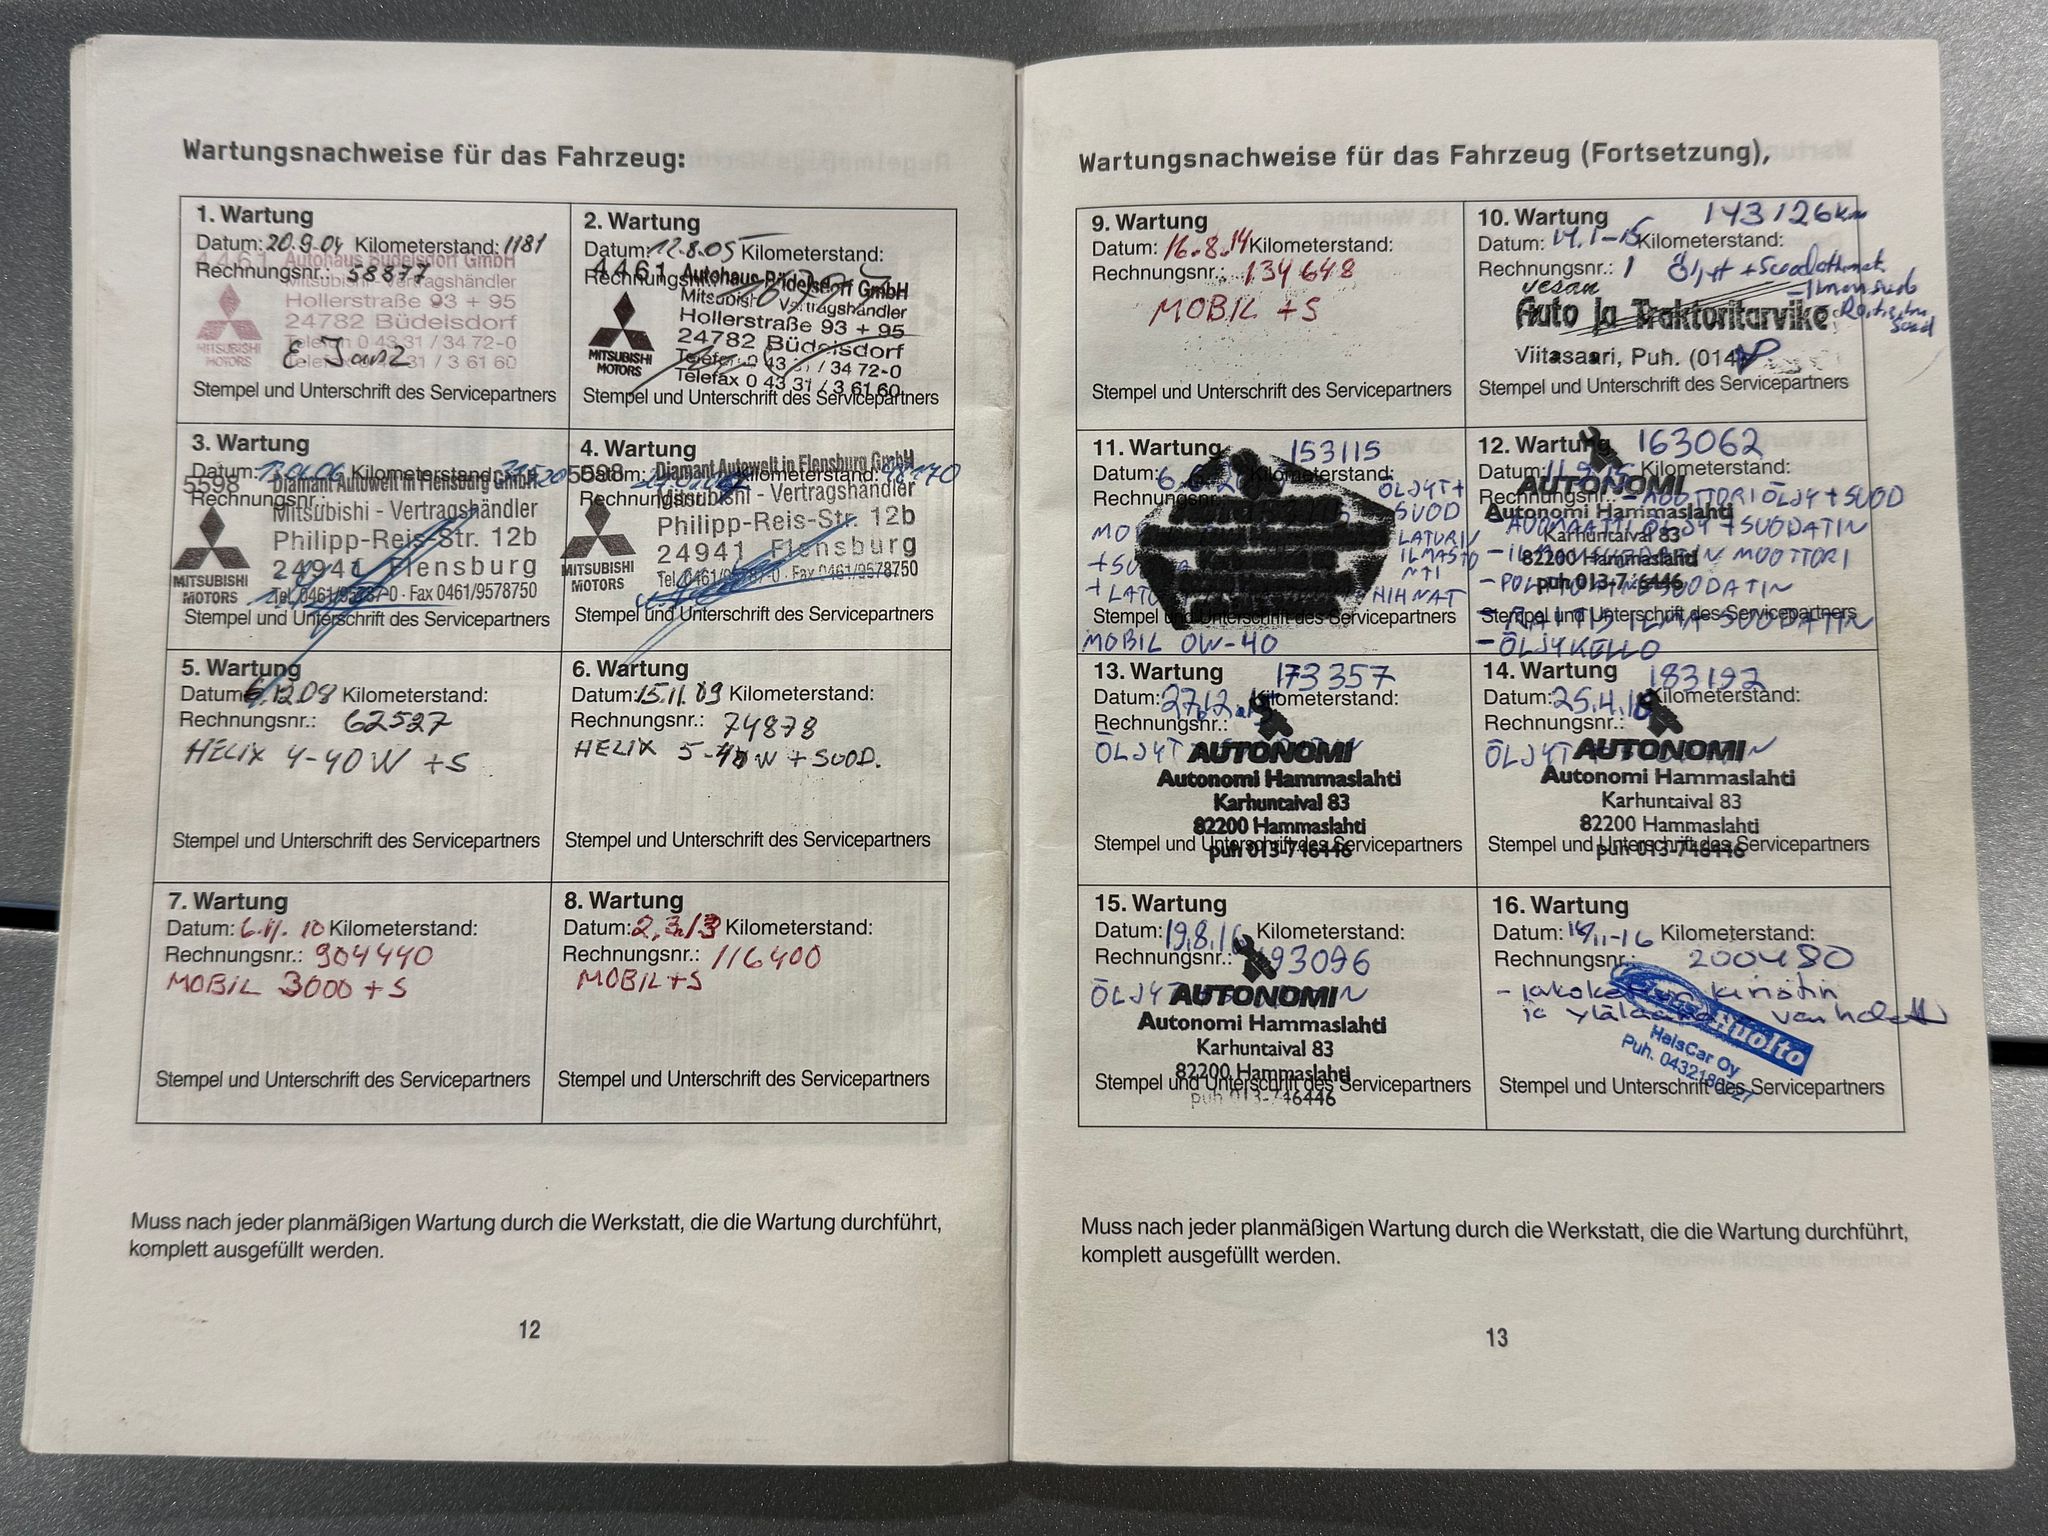 Wartungsnachweise für das Fahrzeug:
1. Wartung
Datum: 20.9.04 Kilometerstand: 1181
4461 Autohaus Büdelsdorf GmbH
Rechnungsnr.: 58877
Mitsubishi - Vertragshändler
Hollerstraße 93 + 95
24782 Büdelsdorf
Telefon 0 43 31 / 34 72-0
Telefax 0 43 31 / 3 61 60
MITSUBISHI
MOTORS
E Janz
Stempel und Unterschrift des Servicepartners
2. Wartung
Datum: 12.8.05 Kilometerstand:
4461 Autohaus Büdelsdorf GmbH
Rechnungsnr.:
Mitsubishi - Vertragshändler
Hollerstraße 93 + 95
24782 Büdelsdorf
Telefon 0 43 31 / 34 72-0
Telefax 0 43 31 / 3 61 60
MITSUBISHI
MOTORS
Stempel und Unterschrift des Servicepartners
3. Wartung
Datum: Kilometerstand:
5598 Diamant Autowelt in Flensburg GmbH
Rechnungsnr.:
Mitsubishi - Vertragshändler
Philipp-Reis-Str. 12b
24941 Flensburg
Tel. 0461/95787-0 · Fax 0461/9578750
MITSUBISHI
MOTORS
Stempel und Unterschrift des Servicepartners
4. Wartung
Datum: Kilometerstand:
5598 Diamant Autowelt in Flensburg GmbH
Rechnungsnr.:
Mitsubishi - Vertragshändler
Philipp-Reis-Str. 12b
24941 Flensburg
Tel. 0461/95787-0 · Fax 0461/9578750
MITSUBISHI
MOTORS
Stempel und Unterschrift des Servicepartners
5. Wartung
Datum: 6.12.08 Kilometerstand:
Rechnungsnr.: 62527
HELIX 4-40W +S
Stempel und Unterschrift des Servicepartners
6. Wartung
Datum: 15.11.09 Kilometerstand:
Rechnungsnr.: 74878
HELIX 5-40W + SUOD.
Stempel und Unterschrift des Servicepartners
7. Wartung
Datum: 6.11.10 Kilometerstand:
Rechnungsnr.: 904440
MOBIL 3000 + S
Stempel und Unterschrift des Servicepartners
8. Wartung
Datum: 2.3.13 Kilometerstand:
Rechnungsnr.: 116400
MOBIL + S
Stempel und Unterschrift des Servicepartners
Muss nach jeder planmäßigen Wartung durch die Werkstatt, die die Wartung durchführt,
komplett ausgefüllt werden.
12
Wartungsnachweise für das Fahrzeug (Fortsetzung),
9. Wartung
Datum: 16.8.14 Kilometerstand:
Rechnungsnr.: 134648
MOBIL + S
Stempel und Unterschrift des Servicepartners
10. Wartung 143126km
Datum: 14.1-15 Kilometerstand:
Rechnungsnr.: 1 Öljyt +
Vesan
Auto ja Traktoritarvike
Viitasaari, Puh. (014)
Stempel und Unterschrift des Servicepartners
11. Wartung 153115
Datum: Kilometerstand:
Rechnungsnr.
ÖLJYT +
SUOD
LATURIN
ILMASTO
NTI
HIHNAT
Stempel und Unterschrift des Servicepartners
MOBIL 0W-40
12. Wartung 163062
Datum: Kilometerstand:
AUTONOMI
Rechnungsnr.: - MOOTTORIÖLJY + SUOD
Autonomi Hammaslahti
- AUTOMAATTIÖLJY + SUODATIN
Karhuntaival 83
82200 Hammaslahti
- ILMANSUODATIN MOOTTORI
puh 013-746446
- POLTTOAINESUODATIN
Stempel und Unterschrift des Servicepartners
- RAITIS ILMA SUODATIN
- ÖLJYKELLO
13. Wartung 173357
Datum: 27.12. Kilometerstand:
Rechnungsnr.:
AUTONOMI
Autonomi Hammaslahti
Karhuntaival 83
82200 Hammaslahti
Stempel und Unterschrift des Servicepartners
puh 013-746446
14. Wartung 183192
Datum: 25.4.16 Kilometerstand:
Rechnungsnr.:
AUTONOMI
Autonomi Hammaslahti
Karhuntaival 83
82200 Hammaslahti
Stempel und Unterschrift des Servicepartners
puh 013-746446
15. Wartung
Datum: 19.8.16 Kilometerstand:
Rechnungsnr.: 193096
AUTONOMI
Autonomi Hammaslahti
Karhuntaival 83
82200 Hammaslahti
Stempel und Unterschrift des Servicepartners
puh 013-746446
16. Wartung
Datum: 14/11-16 Kilometerstand:
Rechnungsnr.: 200480
kiristin
ja
HelsCar Oy
Stempel und Unterschrift des Servicepartners
Muss nach jeder planmäßigen Wartung durch die Werkstatt, die die Wartung durchführt,
komplett ausgefüllt werden.
13